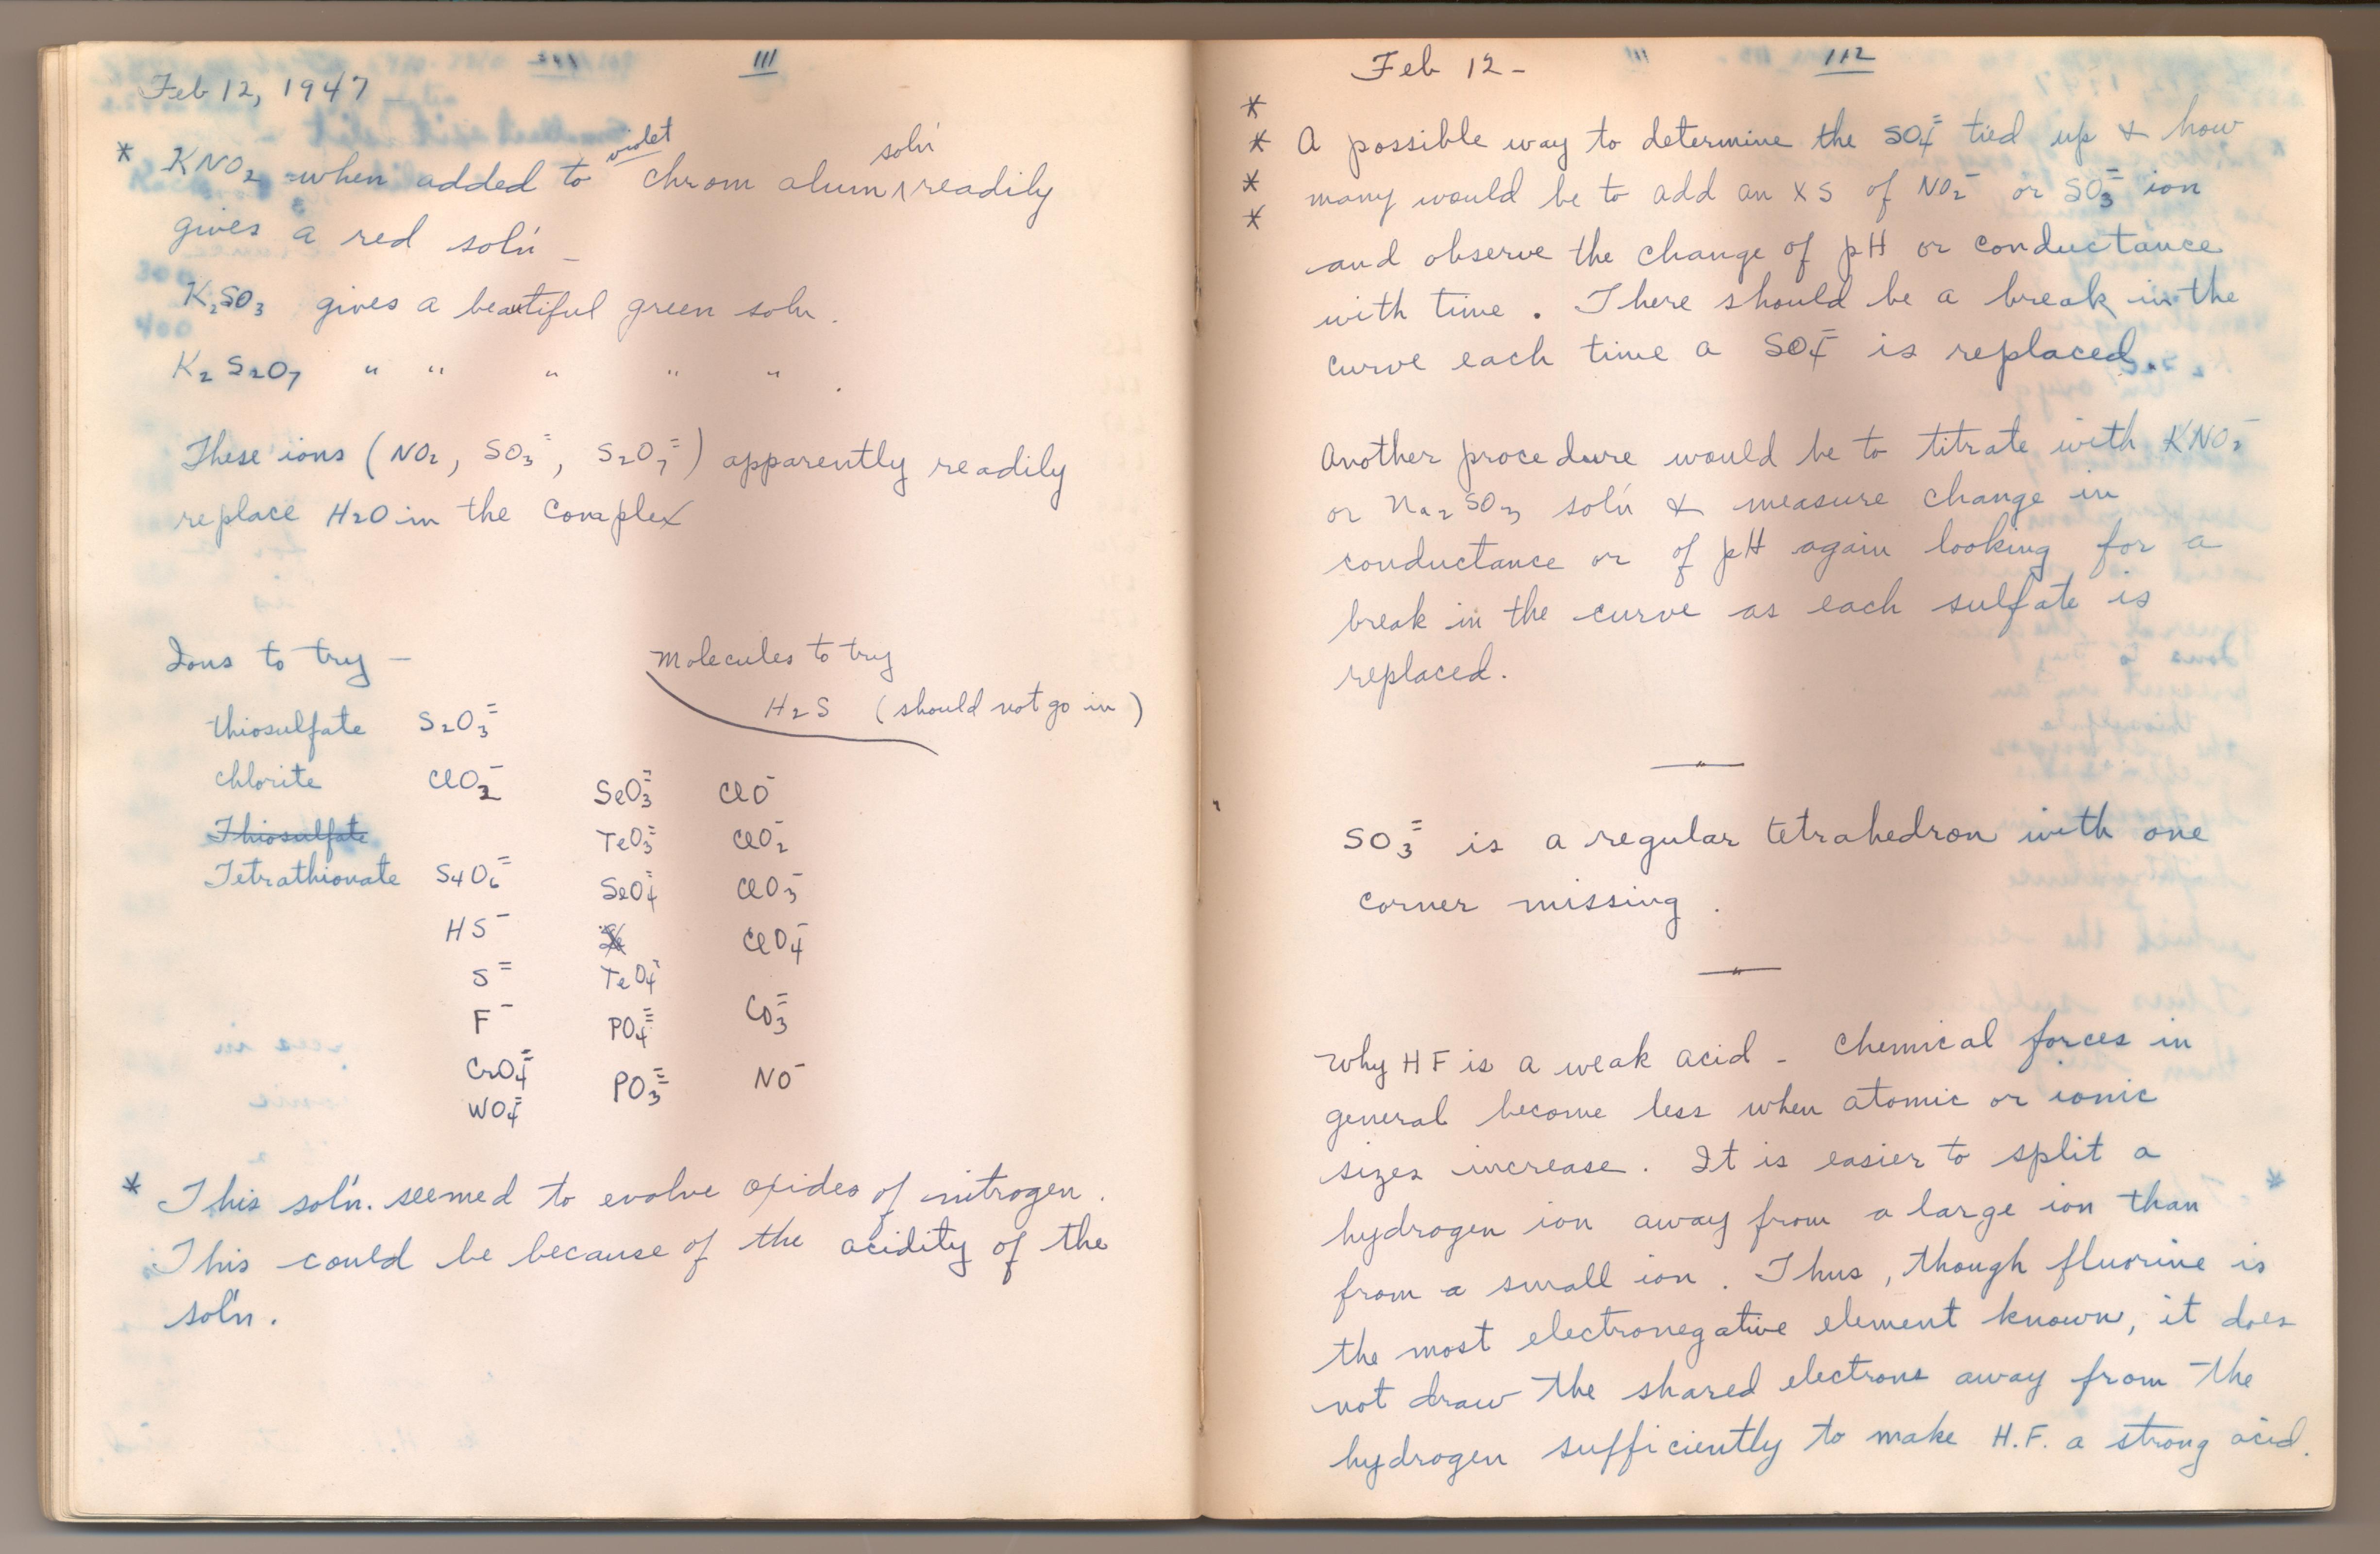 111
Feb 12, 1947
* KNO₂ when added to violet chrom alum soln readily
gives a red soln –
K₂SO₃ gives a beautiful green soln.
K₂S₂O₇ " " " " " .
These ions (NO₂, SO₃⁼, S₂O₇⁼) apparently readily
replace H₂O in the complex
Ions to try –
Molecules to try
H₂S (should not go in)
thiosulfate S₂O₃⁼
chlorite ClO₂⁻ SeO₃⁼ ClO⁻
Thiosulfate TeO₃⁼ ClO₂⁻
Tetrathionate S₄O₆⁼ SeO₄⁼ ClO₃⁻
HS⁻ ClO₄⁻
S⁼ TeO₄⁼
F⁻ PO₄≡ CO₃⁼
CrO₄⁼ PO₃≡ NO⁻
WO₄⁼
* This sol'n. seemed to evolve oxides of nitrogen.
This could be because of the acidity of the
sol'n.
Feb 12 – 112
*
* A possible way to determine the SO₄⁼ tied up & how
* many would be to add an XS of NO₂⁻ or SO₃⁼ ion
*
and observe the change of pH or conductance
with time. There should be a break in the
curve each time a SO₄⁼ is replaced.
Another procedure would be to titrate with KNO₂
or Na₂SO₃ soln & measure change in
conductance or of pH again looking for a
break in the curve as each sulfate is
replaced.
SO₃⁼ is a regular tetrahedron with one
corner missing.
Why HF is a weak acid – Chemical forces in
general become less when atomic or ionic
sizes increase. It is easier to split a
hydrogen ion away from a large ion than
from a small ion. Thus, though fluorine is
the most electronegative element known, it does
not draw the shared electrons away from the
hydrogen sufficiently to make H.F. a strong acid.